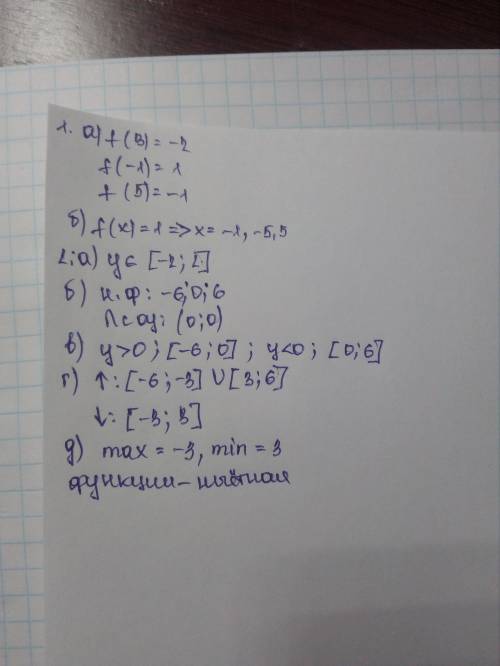 1. а) f(3)=-2
f(-1)=1
f(5)=-1
б) f(x)=1=>x=-1,-5,5
2.а) y∈ [-2; 2]
б) н.ф: -6;0;6
ПсОу: (0;0)
в) y>0; [-6;0] ; y<0; [0;6]
г) ↑: [-6;-3] U [3;6]
↓: [-3; 3]
д) max = -3, min = 3
функции –